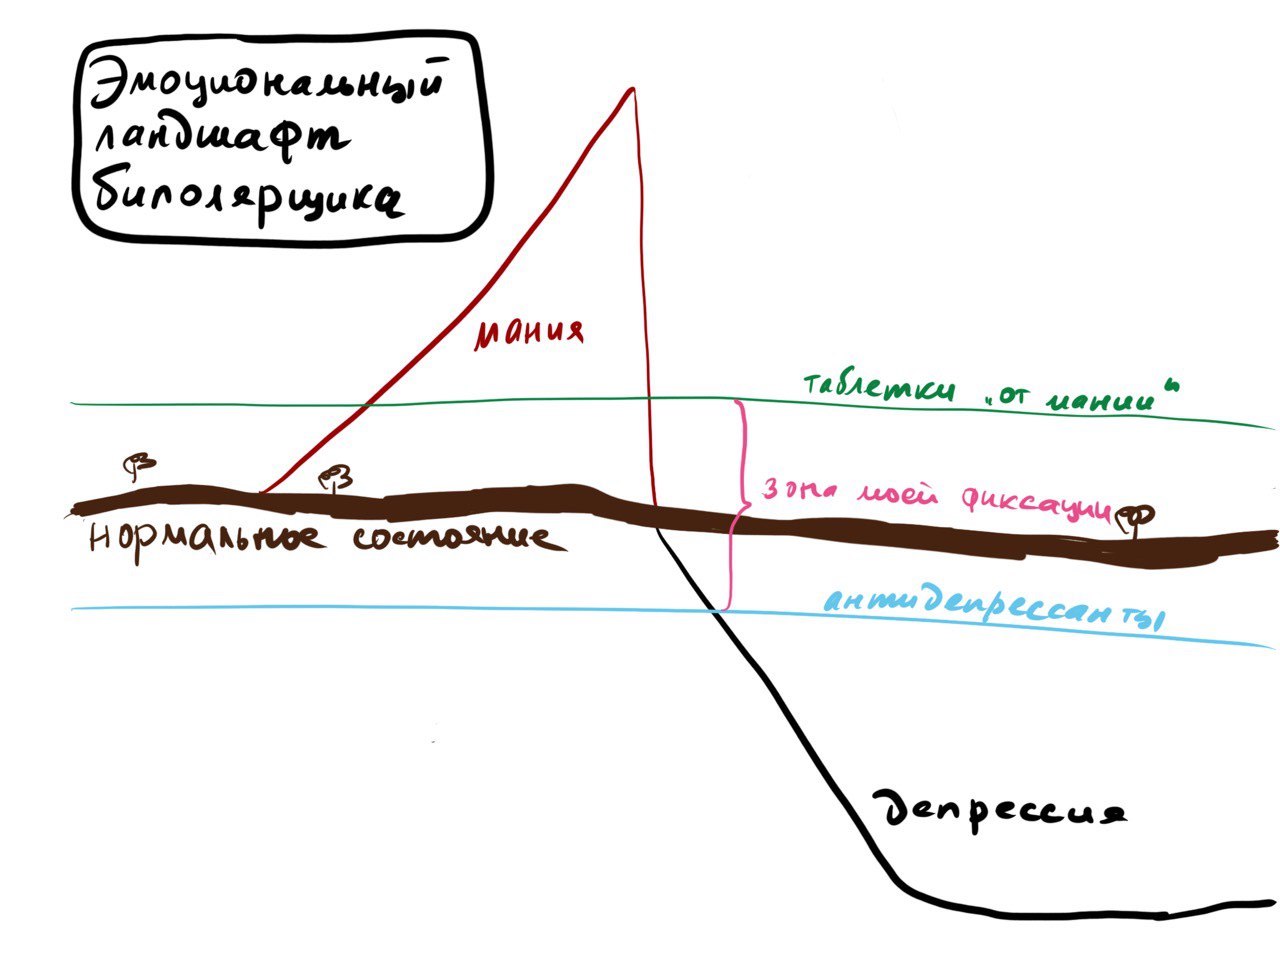 Эмоциональный
ландшафт
биполярщика
мания
таблетки „от мании“
зона моей фиксации
нормальное состояние
антидепрессанты
депрессия